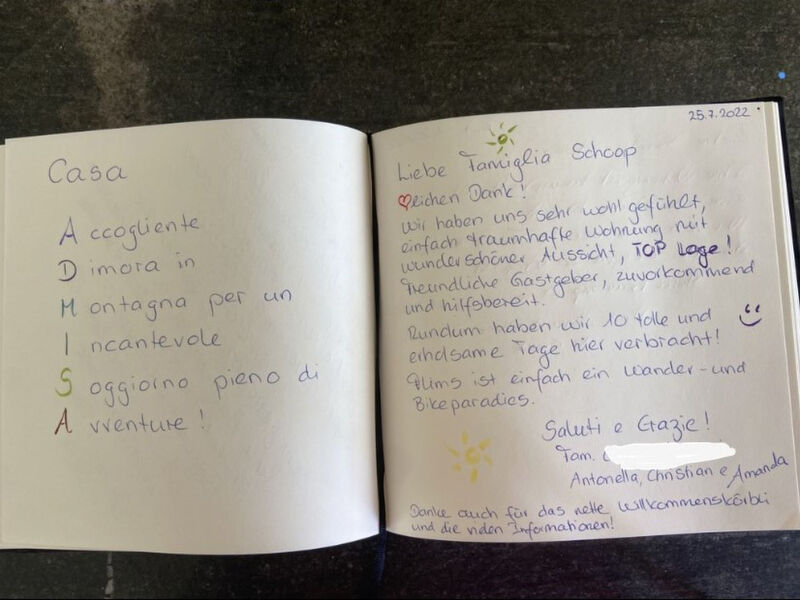 Casa
Accogliente
Dimora in
Montagna per un
Incantevole
Soggiorno pieno di
Avventure!
25.7.2022
Liebe Famiglia Schoop
♥eichen Dank!
Wir haben uns sehr wohl gefühlt,
einfach traumhafte Wohnung mit
wunderschöner Aussicht, TOP Lage!
Freundliche Gastgeber, zuvorkommend
und hilfsbereit.
Rundum haben wir 10 tolle und
erholsame Tage hier verbracht!
Flims ist einfach ein Wander- und
Bikeparadies.
Saluti e Grazie!
Fam.
Antonella, Christian e Amanda
Danke auch für das nette Willkommenskörbli
und die vielen Informationen!